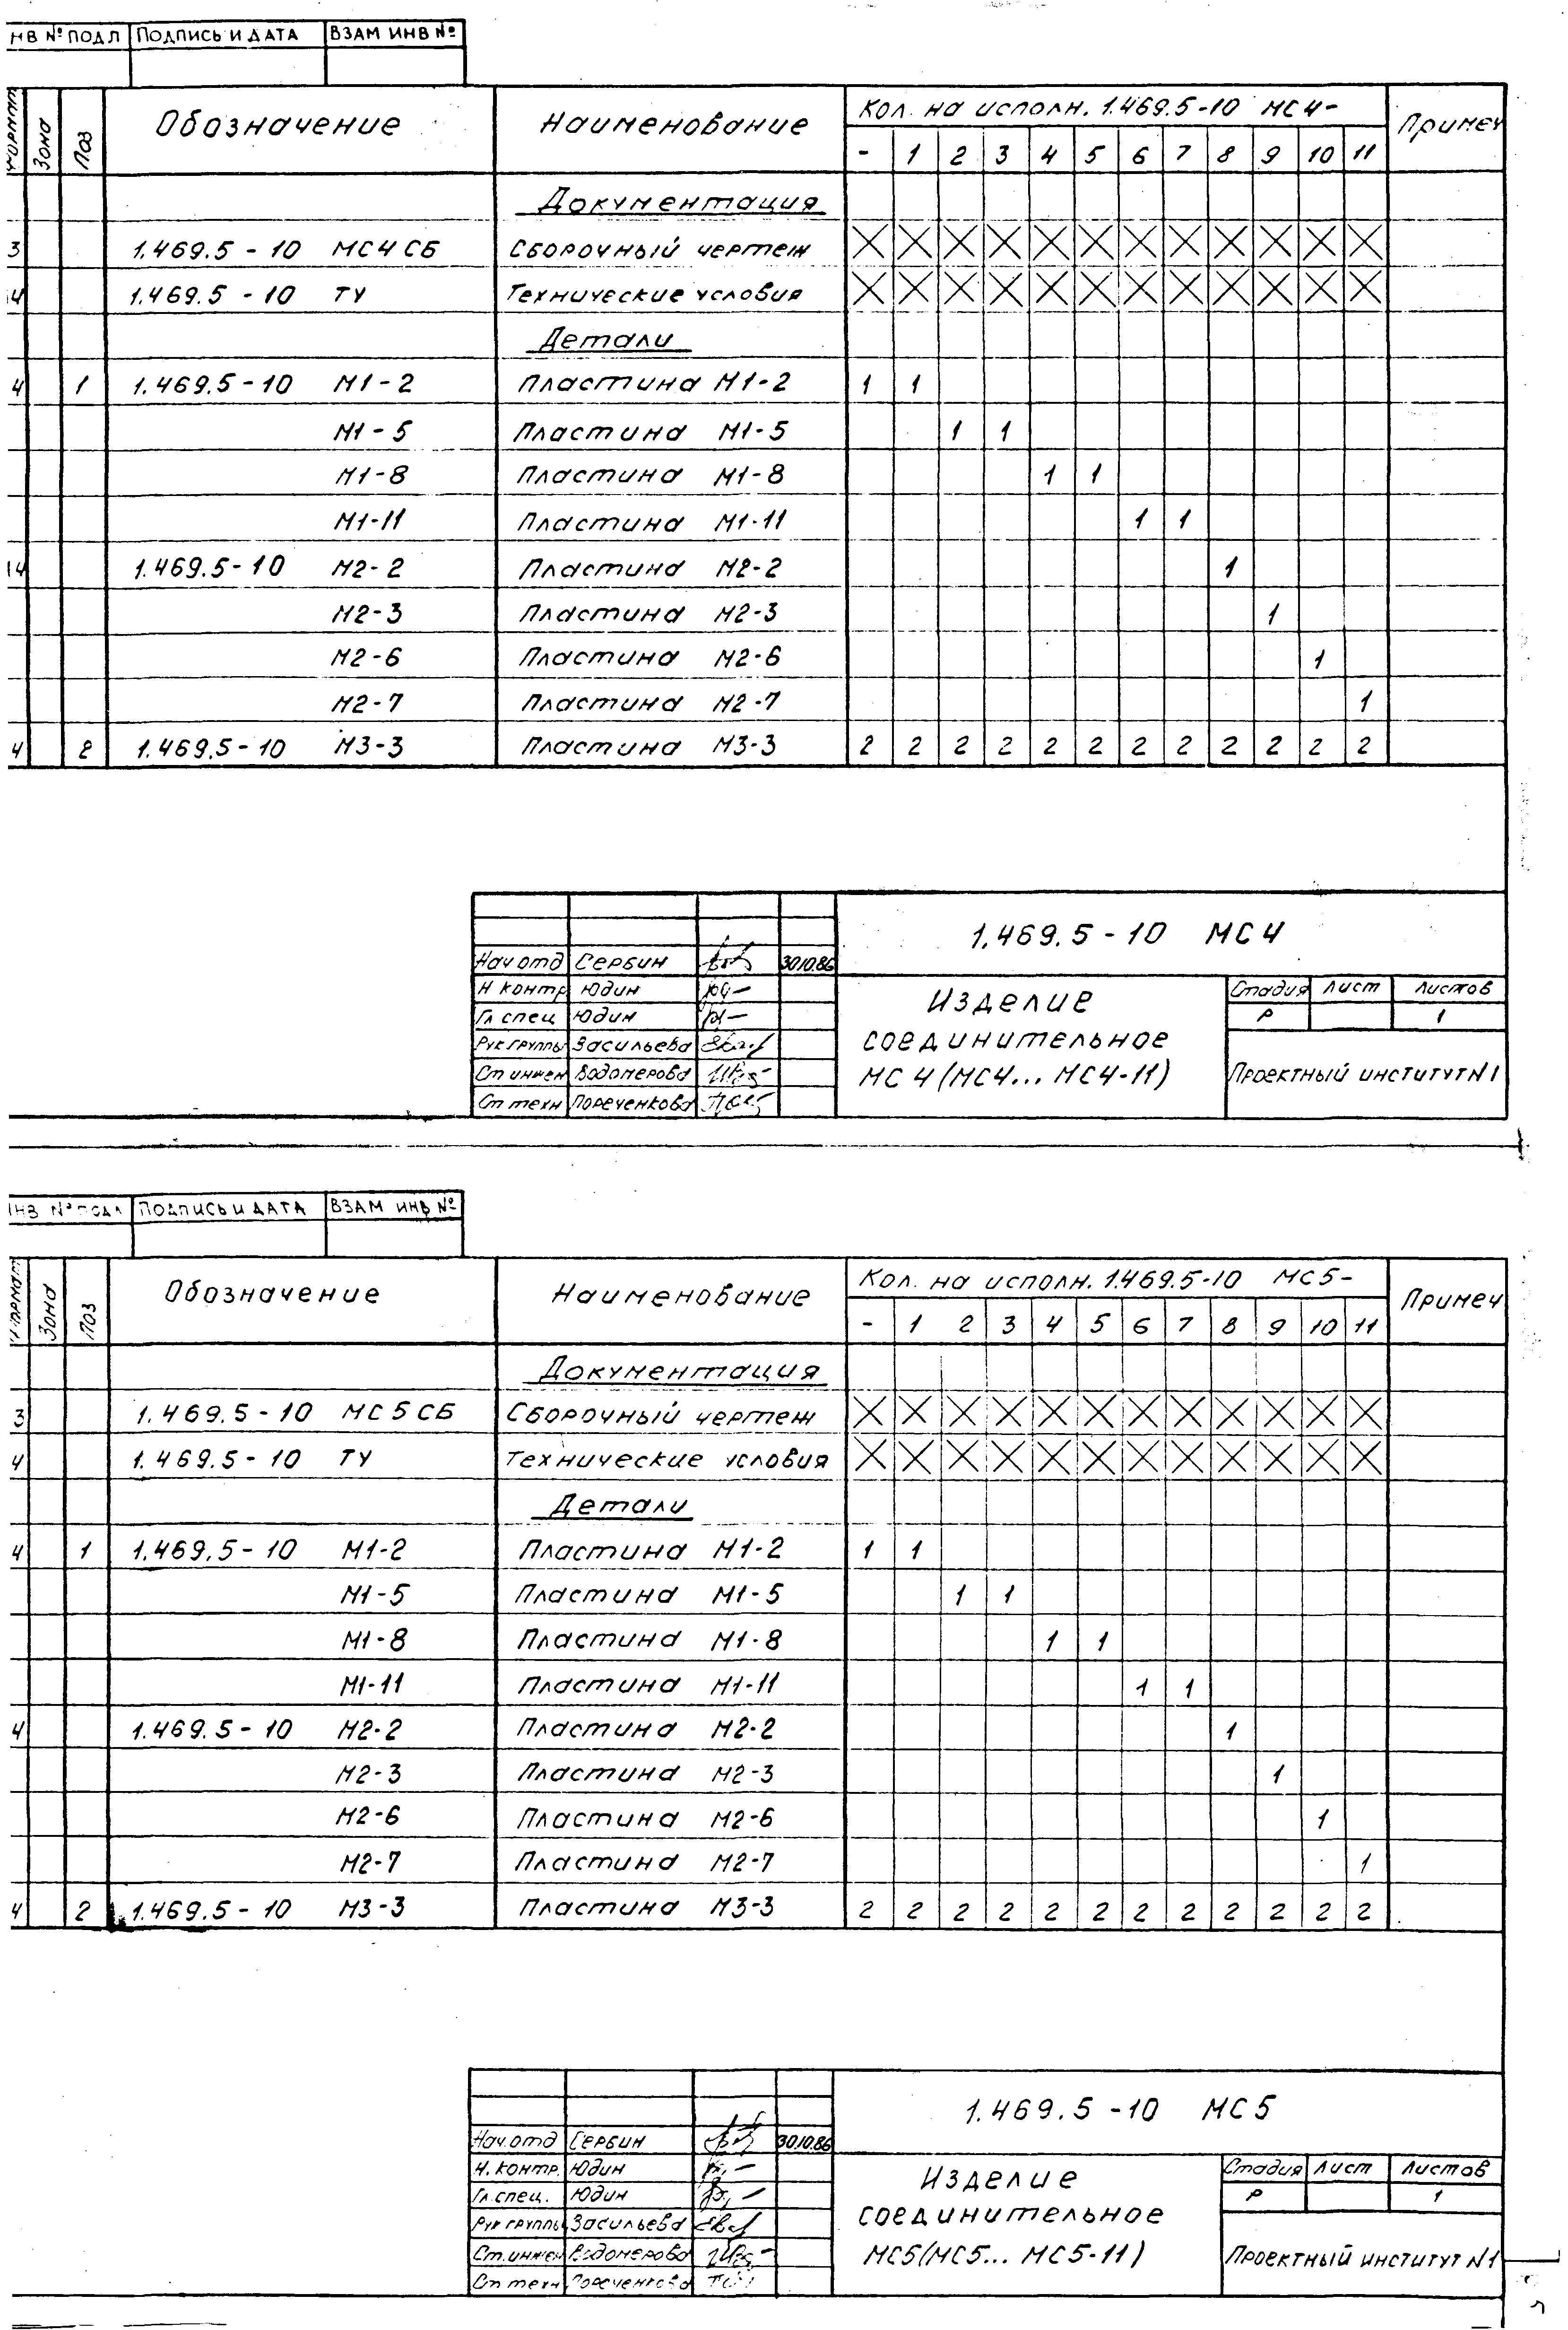 НВ № ПОДЛ ПОДПИСЬ И ДАТА ВЗАМ ИНВ №
Формат Зона Поз Обозначение Наименование Кол. на исполн. 1.469.5-10 МС4- Примеч
- 1 2 3 4 5 6 7 8 9 10 11
Документация
3 1.469.5-10 МС4 СБ Сборочный чертеж
4 1.469.5-10 ТУ Технические условия
Детали
4 1 1.469.5-10 М1-2 Пластина М1-2 1 1
М1-5 Пластина М1-5 1 1
М1-8 Пластина М1-8 1 1
М1-11 Пластина М1-11 1 1
4 1.469.5-10 М2-2 Пластина М2-2 1
М2-3 Пластина М2-3 1
М2-6 Пластина М2-6 1
М2-7 Пластина М2-7 1
4 2 1.469.5-10 М3-3 Пластина М3-3 2 2 2 2 2 2 2 2 2 2 2 2
1.469.5-10 МС4
Нач отд Сербин 30.10.86
Н контр Юдин
Гл спец Юдин
Рук группы Засильева
Ст инжен Водомерова
Ст техн Пореченкова
Изделие
соединительное
МС 4 (МС4... МС4-11)
Стадия Лист Листов
Р 1
Проектный институт №1
ИНВ № ПОДЛ ПОДПИСЬ И ДАТА ВЗАМ ИНВ №
Формат Зона Поз Обозначение Наименование Кол. на исполн. 1.469.5-10 МС5- Примеч
- 1 2 3 4 5 6 7 8 9 10 11
Документация
3 1.469.5-10 МС5 СБ Сборочный чертеж
4 1.469.5-10 ТУ Технические условия
Детали
4 1 1.469.5-10 М1-2 Пластина М1-2 1 1
М1-5 Пластина М1-5 1 1
М1-8 Пластина М1-8 1 1
М1-11 Пластина М1-11 1 1
4 1.469.5-10 М2-2 Пластина М2-2 1
М2-3 Пластина М2-3 1
М2-6 Пластина М2-6 1
М2-7 Пластина М2-7 1
4 2 1.469.5-10 М3-3 Пластина М3-3 2 2 2 2 2 2 2 2 2 2 2 2
1.469.5-10 МС5
Нач.отд Сербин 30.10.86
Н. контр. Юдин
Гл.спец. Юдин
Рук группы Засильева
Ст.инжен Водомерова
Ст техн Пореченкова
Изделие
соединительное
МС5(МС5... МС5-11)
Стадия Лист Листов
Р 1
Проектный институт №1